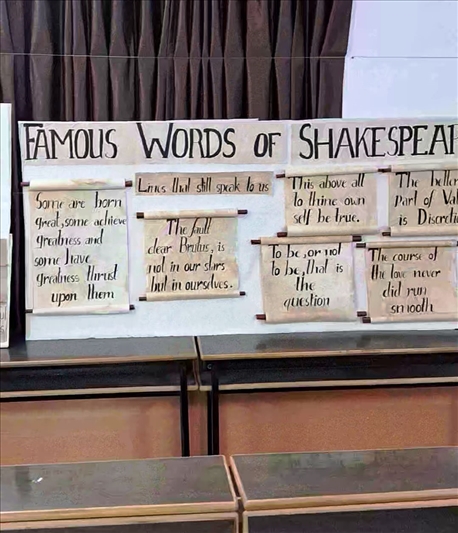 FAMOUS WORDS OF SHAKESPEAR
Some are born
great, some achieve
greatness and
some have
greatness thrust
upon them
Lines that still speak to us
The fault
dear Brutus, is
not in our stars
but in ourselves.
This above all
to thine own
self be true.
To be, or not
to be, that is
the
question
The better
Part of Val
is Discreti
The course of
the love never
did run
smooth